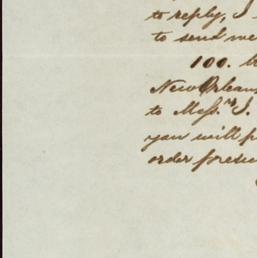 to reply, I
to send me
100.
New Orleans
to Mess.rs J.
you will p
order forewa